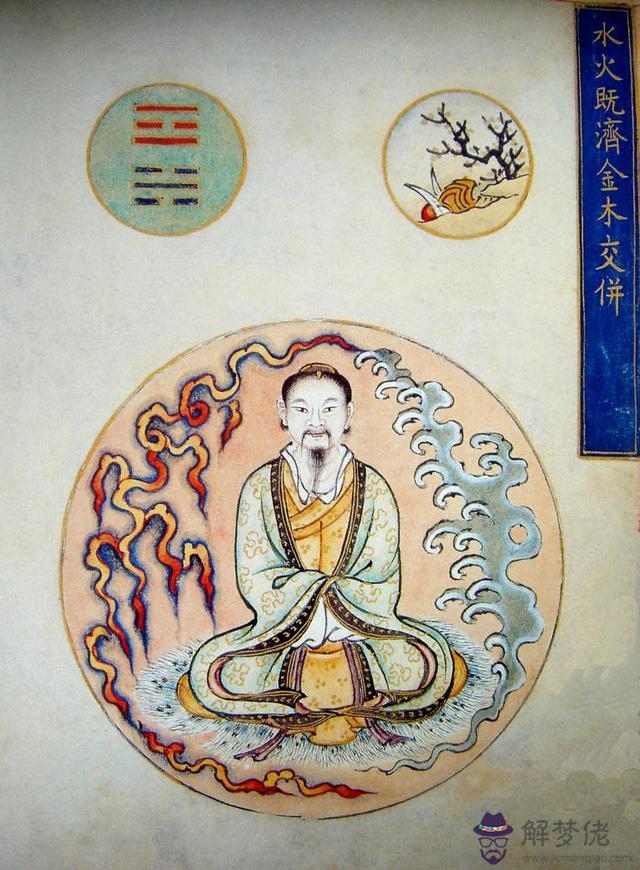 水火既濟金木交併
解梦佬
www.jiemenglao.com